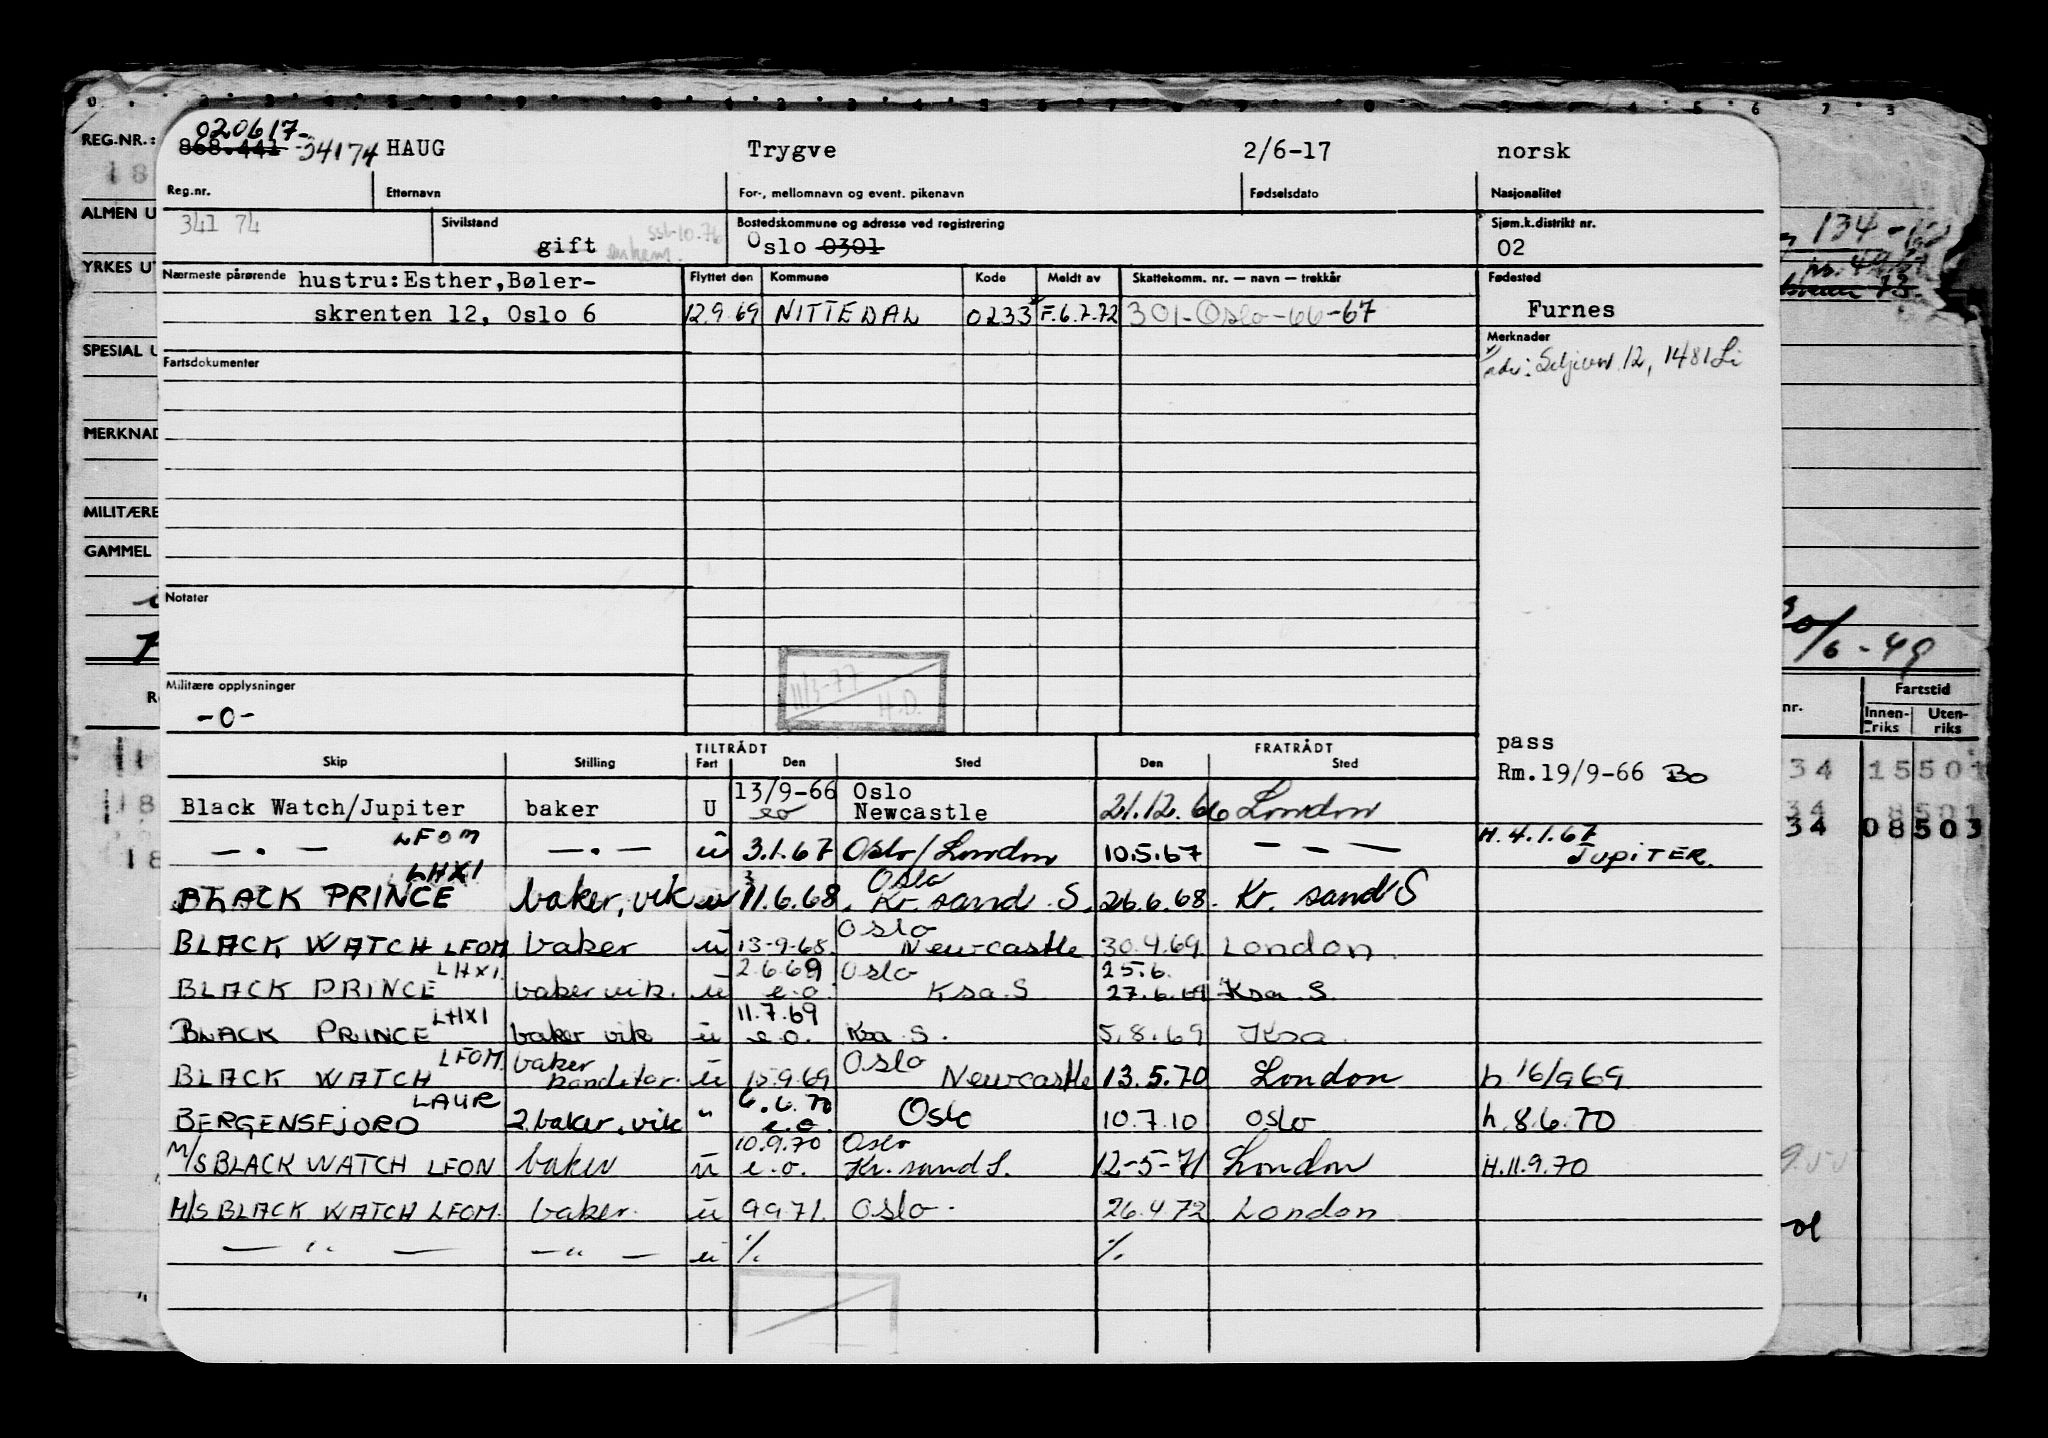 REG.NR.:
ALMEN U
YRKES U
SPESIAL U
MERKNAD
MILITÆRE
GAMMEL
020617-
868.441 -34174 HAUG Trygve 2/6-17 norsk
Reg.nr. Etternavn For-, mellomnavn og event. pikenavn Fødselsdato Nasjonalitet
341 74 Sivilstand Bostedskommune og adresse ved registrering Sjøm.k.distrikt nr.
gift Oslo 0301 02
Nærmeste pårørende hustru: Esther, Bøler- Flyttet den Kommune Kode Meldt av Skattekomm. nr. — navn — trekkår Fødested
skrenten 12, Oslo 6 12.9.69 NITTEDAL 0233 F.6.7.72 301-Oslo-66-67 Furnes
Merknader
12, 1481 Li
Fartsdokumenter
Notater
Militære opplysninger
-0-
11/3-77
H.D.
pass
Rm.19/9-66 Bo
TILTRÅDT FRATRÅDT
Skip Stilling Fart Den Sted Den Sted
Black Watch/Jupiter baker U 13/9-66 eo Oslo Newcastle 21.12.66 London
— . — LFOM — . — u 3.1.67 Oslo/London 10.5.67 — — — H.4.1.67 JUPITER.
BLACK PRINCE LHXI baker, vik u 11.6.68. Oslo Kr. sand S. 26.6.68. Kr. sand S
BLACK WATCH LFOM baker u 13-9-68. Oslo Newcastle 30.4.69. London.
BLACK PRINCE LHXI. baker vik. u 2.6.69 e.o. Oslo Ksa. S 25.6. 27.6.69 Ksa. S.
BLACK PRINCE LHXI baker vik u 11.7.69 e.o. Ksa. S. 5.8.69 Ksa.
BLACK WATCH LFOM. baker konditor. u 15.9.69 Oslo Newcastle 13.5.70 London h 16/9 69
BERGENSFJORD LAUR 2.baker, vik " 6.6.70 e.o. Oslo 10.7.10 Oslo h.8.6.70
M/S BLACK WATCH LFON baker u 10.9.70 e.o. Oslo Kr. sand S. 12-5-71 London H.11.9.70
M/S BLACK WATCH LFOM. baker. u 9971. Oslo. 26.4.72 London
— " — — " — u % %
134-
30/6-49
nr. Fartstid
Innen-riks Uten-riks
34 15501
34 8501
34 08503